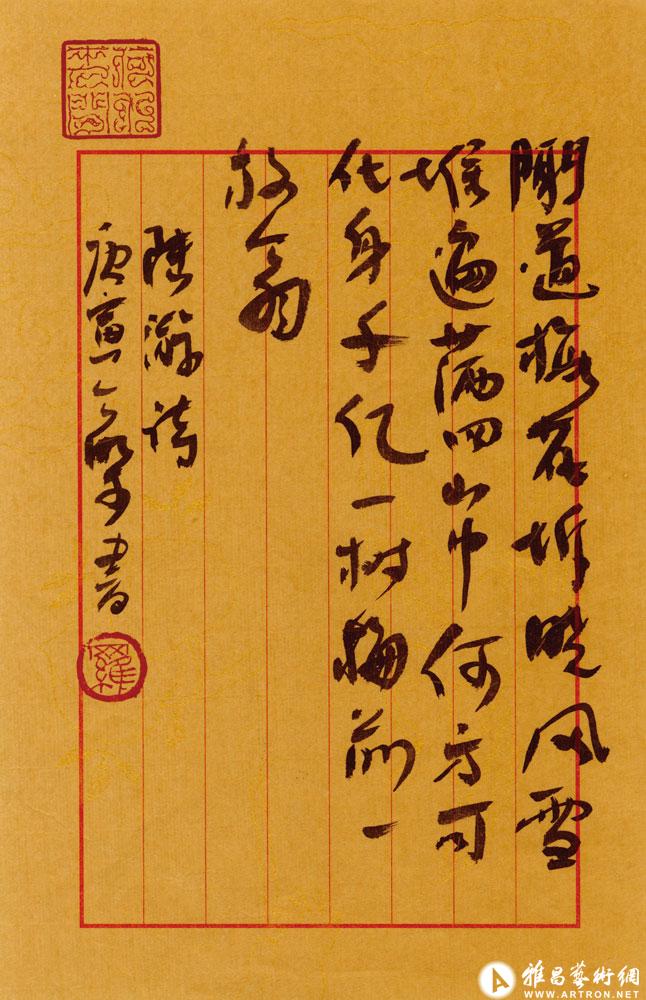 聞道梅花坼曉風雪
堆遍滿四山中何方可
化身千亿一树梅前一
放翁
陸游詩
庚寅書
羅
雅昌藝術網
WWW.ARTRON.NET